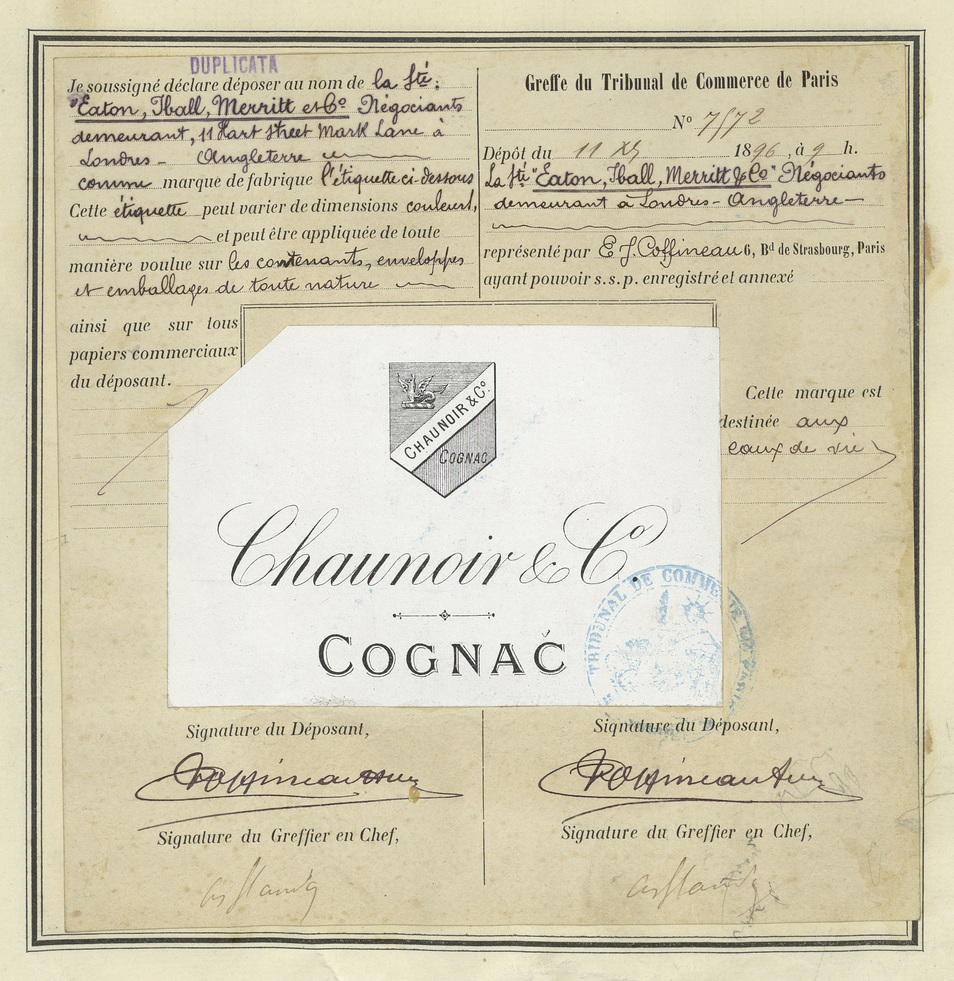 DUPLICATA
Je soussigné déclare déposer au nom de la Sté:
"Eaton, Iball, Merritt et Co Négociants
demeurant, 11 Hart Street Mark Lane à
Londres - Angleterre
comme marque de fabrique l'étiquette ci-dessous
Cette étiquette peut varier de dimensions couleurs,
et peut être appliquée de toute
manière voulue sur les contenants, enveloppes
et emballages de toute nature
ainsi que sur tous
papiers commerciaux
du déposant.
Greffe du Tribunal de Commerce de Paris
No 7572
Dépôt du 11 1896, à 9 h.
La Sté "Eaton, Iball, Merritt & Co" Négociants
demeurant à Londres - Angleterre -
représenté par E J. Coffineau 6, Bd de Strasbourg, Paris
ayant pouvoir s.s.p. enregistré et annexé
Cette marque est
destinée aux
eaux de vie
CHAUNOIR & Co.
COGNAC
Chaunoir & Co.
COGNAC
TRIBUNAL DE COMMERCE DE
Signature du Déposant,
Signature du Déposant,
Signature du Greffier en Chef,
Signature du Greffier en Chef,